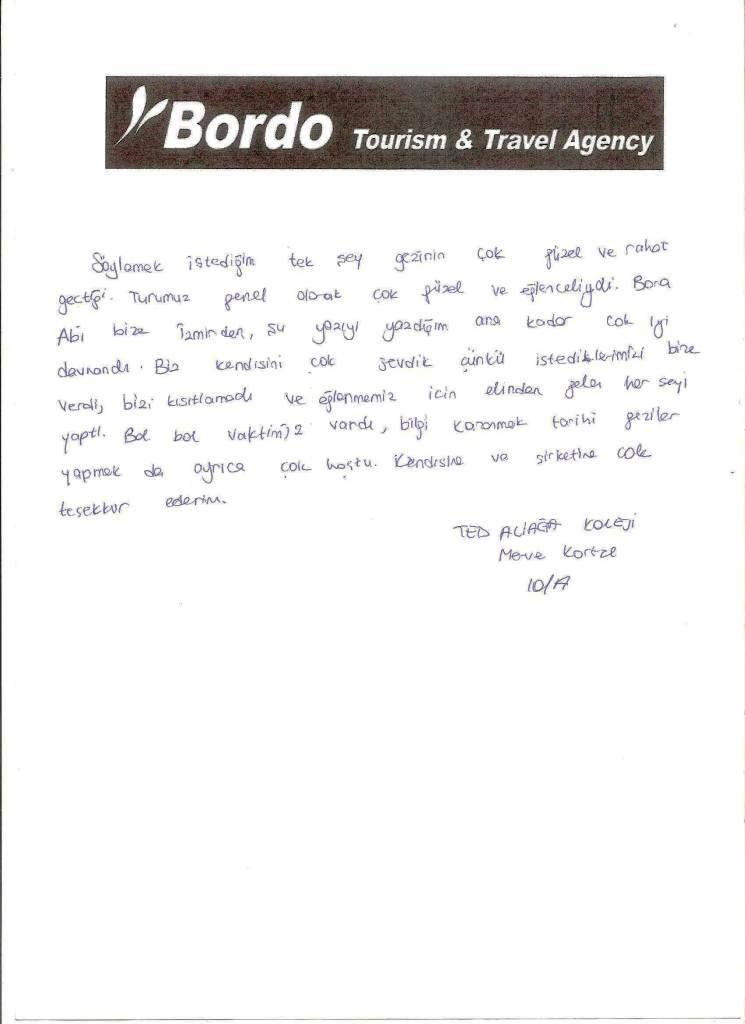 Bordo Tourism & Travel Agency
Söylemek istediğim tek şey gezinin çok güzel ve rahat
geçtiği. Turumuz genel olarak çok güzel ve eğlenceliydi. Bora
Abi bize İzmirden, şu yazıyı yazdığım ana kadar çok iyi
davrandı. Biz kendisini çok sevdik çünkü istediklerimizi bize
verdi, bizi kısıtlamadı ve eğlenmemiz için elinden gelen her şeyi
yaptı. Bol bol vaktimiz vardı, bilgi kazanmak tarihi geziler
yapmak da ayrıca çok hoştu. Kendisine ve şirketine çok
teşekkür ederim.
TED ALİAĞA KOLEJİ
Merve
10/A